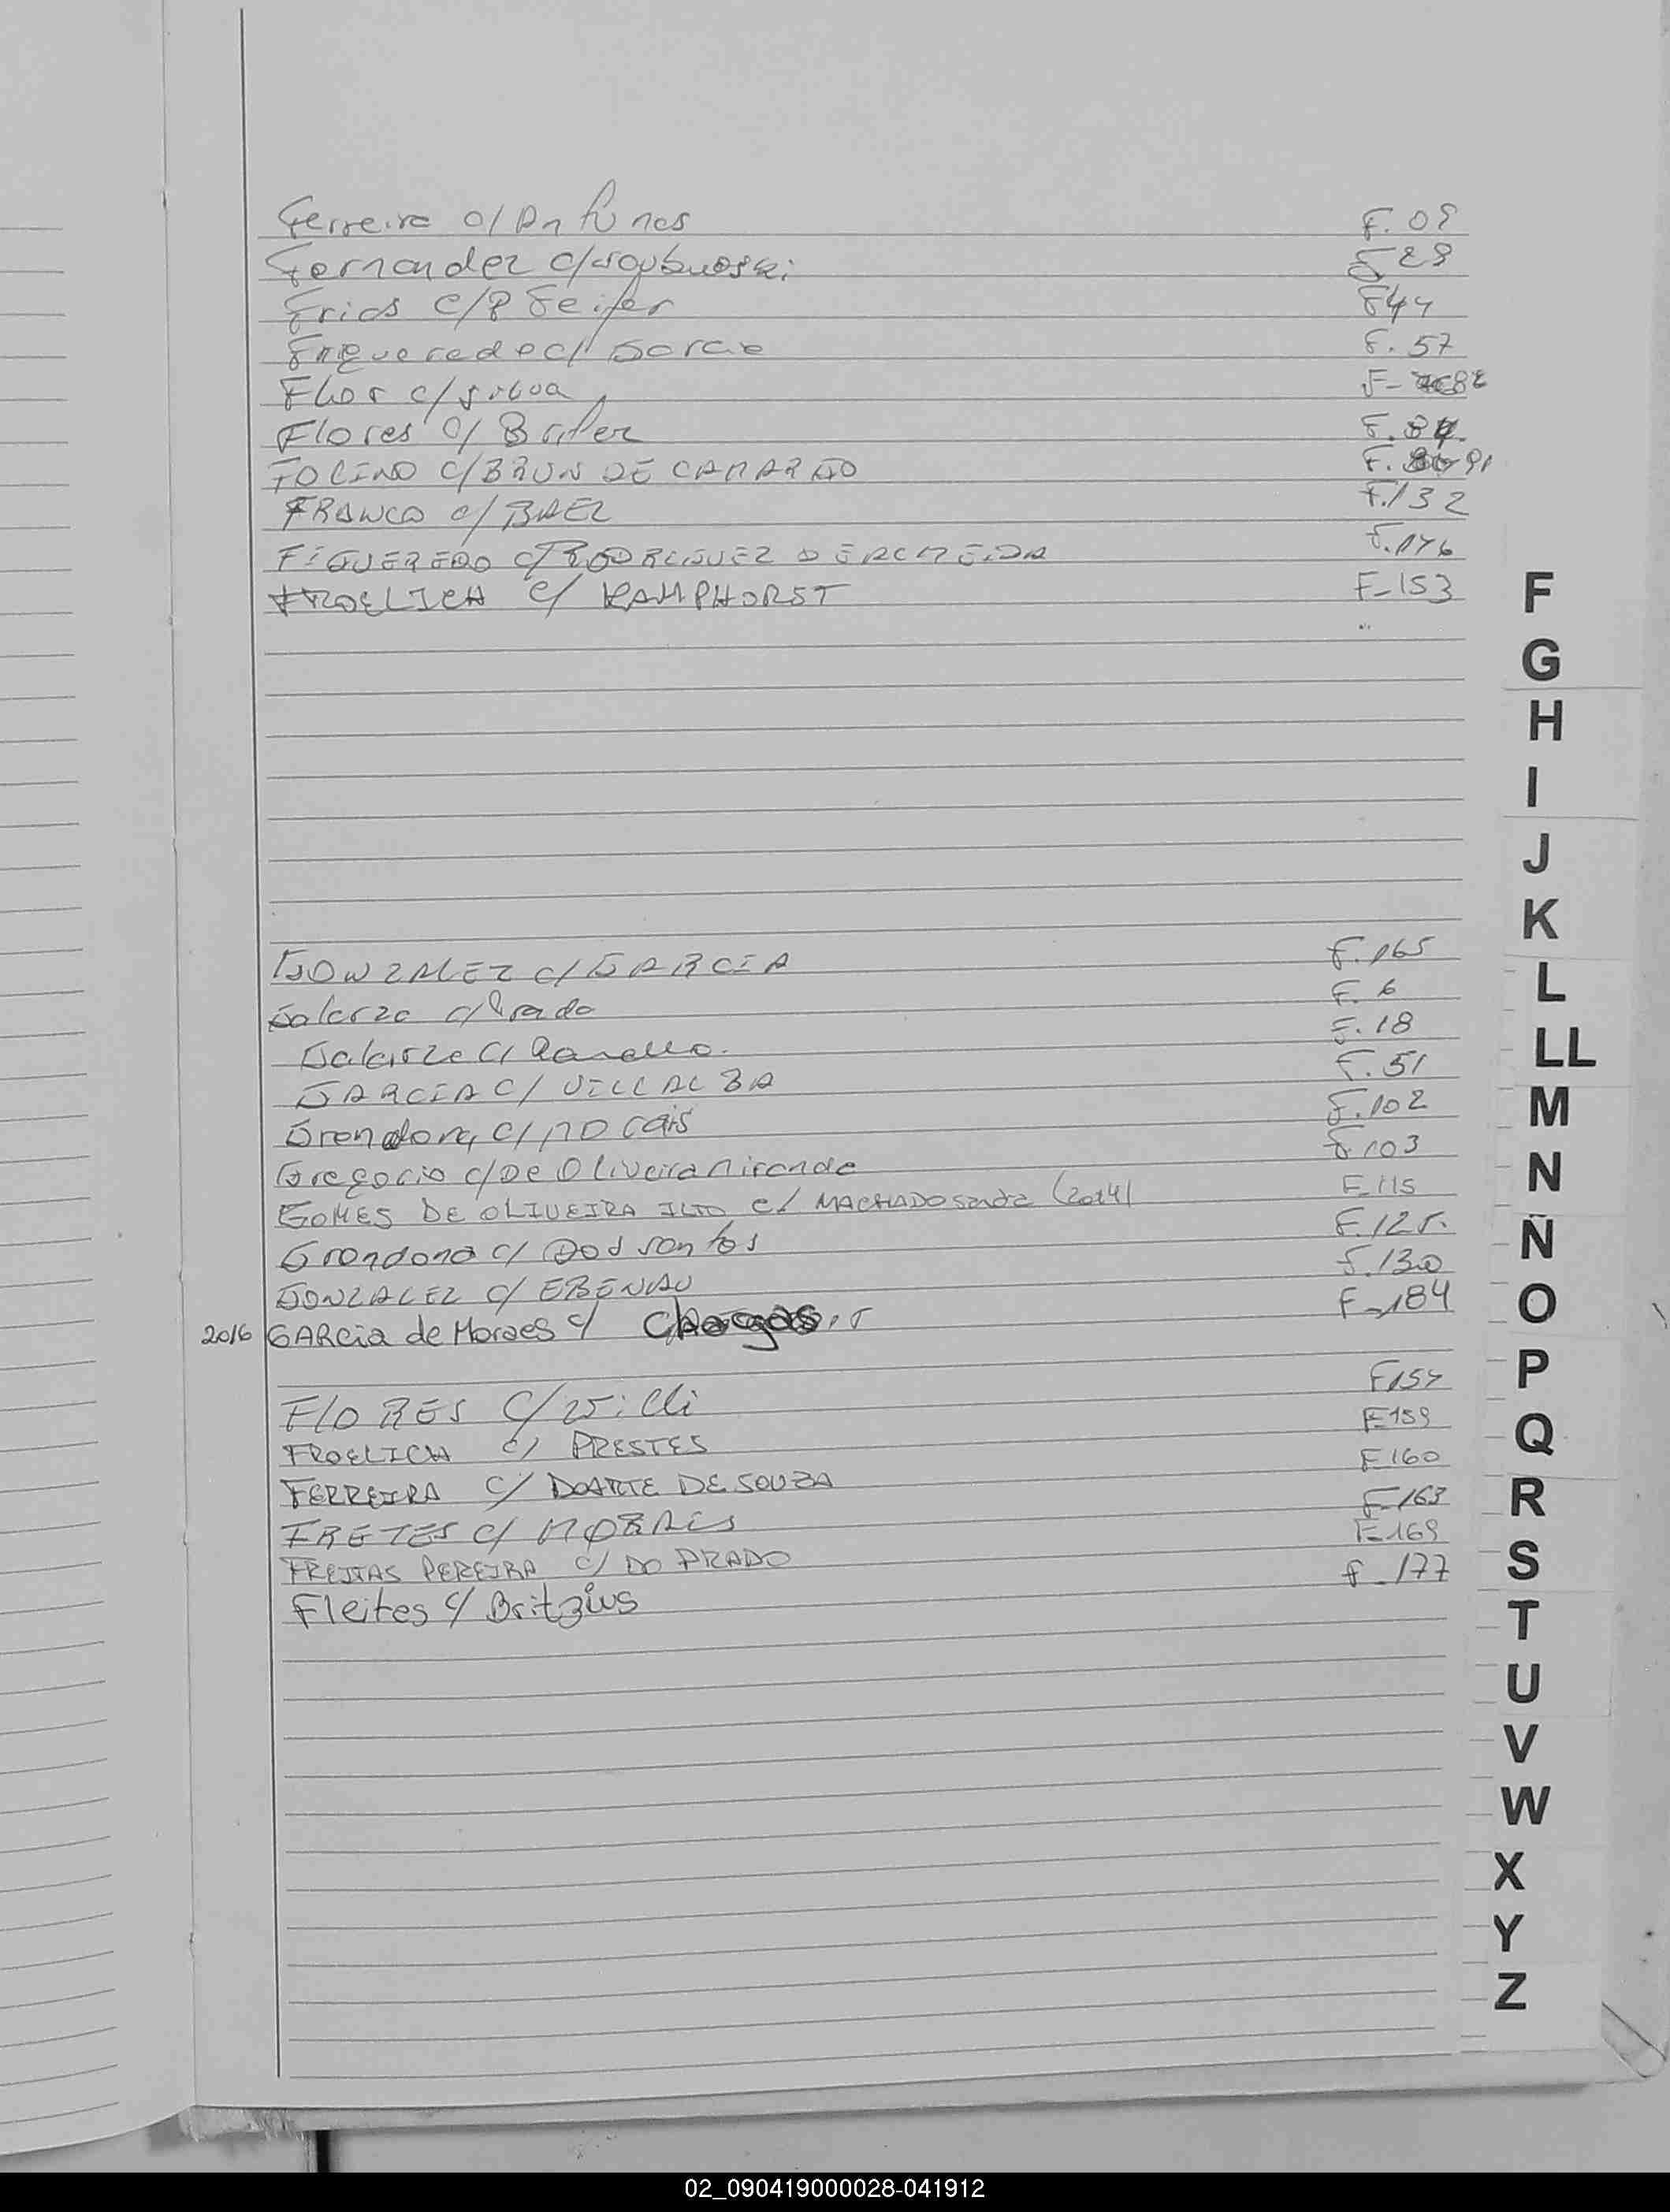 Ferreira c/ Antunes F. 09
Fernandez c/ F 29
Frias c/ Pfeifer F 44
c/ Garcia F. 57
Flor c/ Silva F- 82
Flores c/ Briter F.
FOLINO c/ BRUN DE CAMARGO F. 91
FRANCO c/ BAEZ F. 132
FIGUEREDO c/ RODRIGUEZ D F. 146
FROELICH c/ KAMPHORST F-153
GONZALEZ c/ GARCIA F. 165
Galarza c/ Prado F. 6
Galarza c/ F. 18
GARCIA C/ VILLALBA F. 51
c/ F. 102
Gregorio c/ De Oliveira Miranda F. 103
GOMES DE OLIVEIRA ILTO c/ MACHADO (2014) F-115
Grondona c/ Dos santos F. 125.
GONZALEZ c/ EBENAU F. 130
2016 GARcia de Moraes c/ Chagas F-184
FLORES C/ Willi F 157
FROELICH c/ PRESTES F-159
FERREIRA c/ DOARTE DE SOUZA F 160
FRETES c/ MORAIS F-163
FREITAS PEREIRA c/ DO PRADO F-169
Fleites c/ Britzius F-177
F
G
H
I
J
K
L
LL
M
N
Ñ
O
P
Q
R
S
T
U
V
W
X
Y
Z
02_090419000028-041912